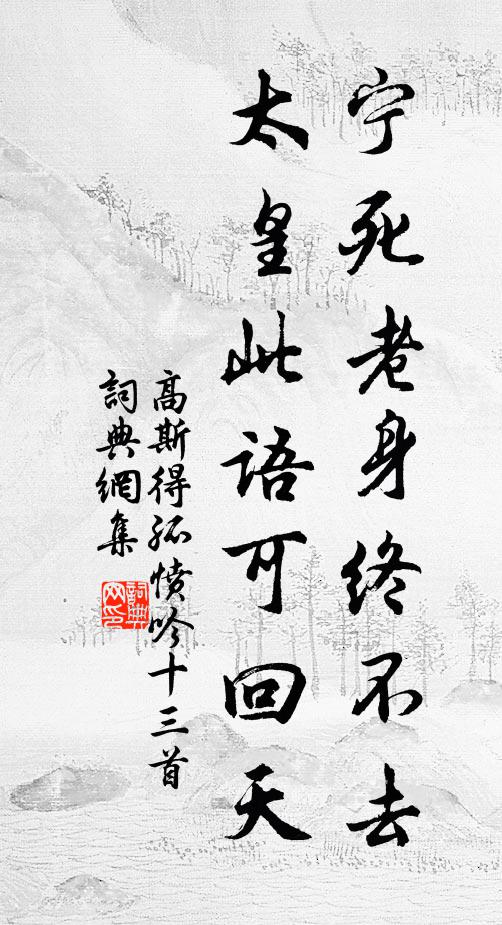 宁死老身终不去
太皇此语可回天
高斯得孤愤吟十三首
詞典網集
詞典
网印